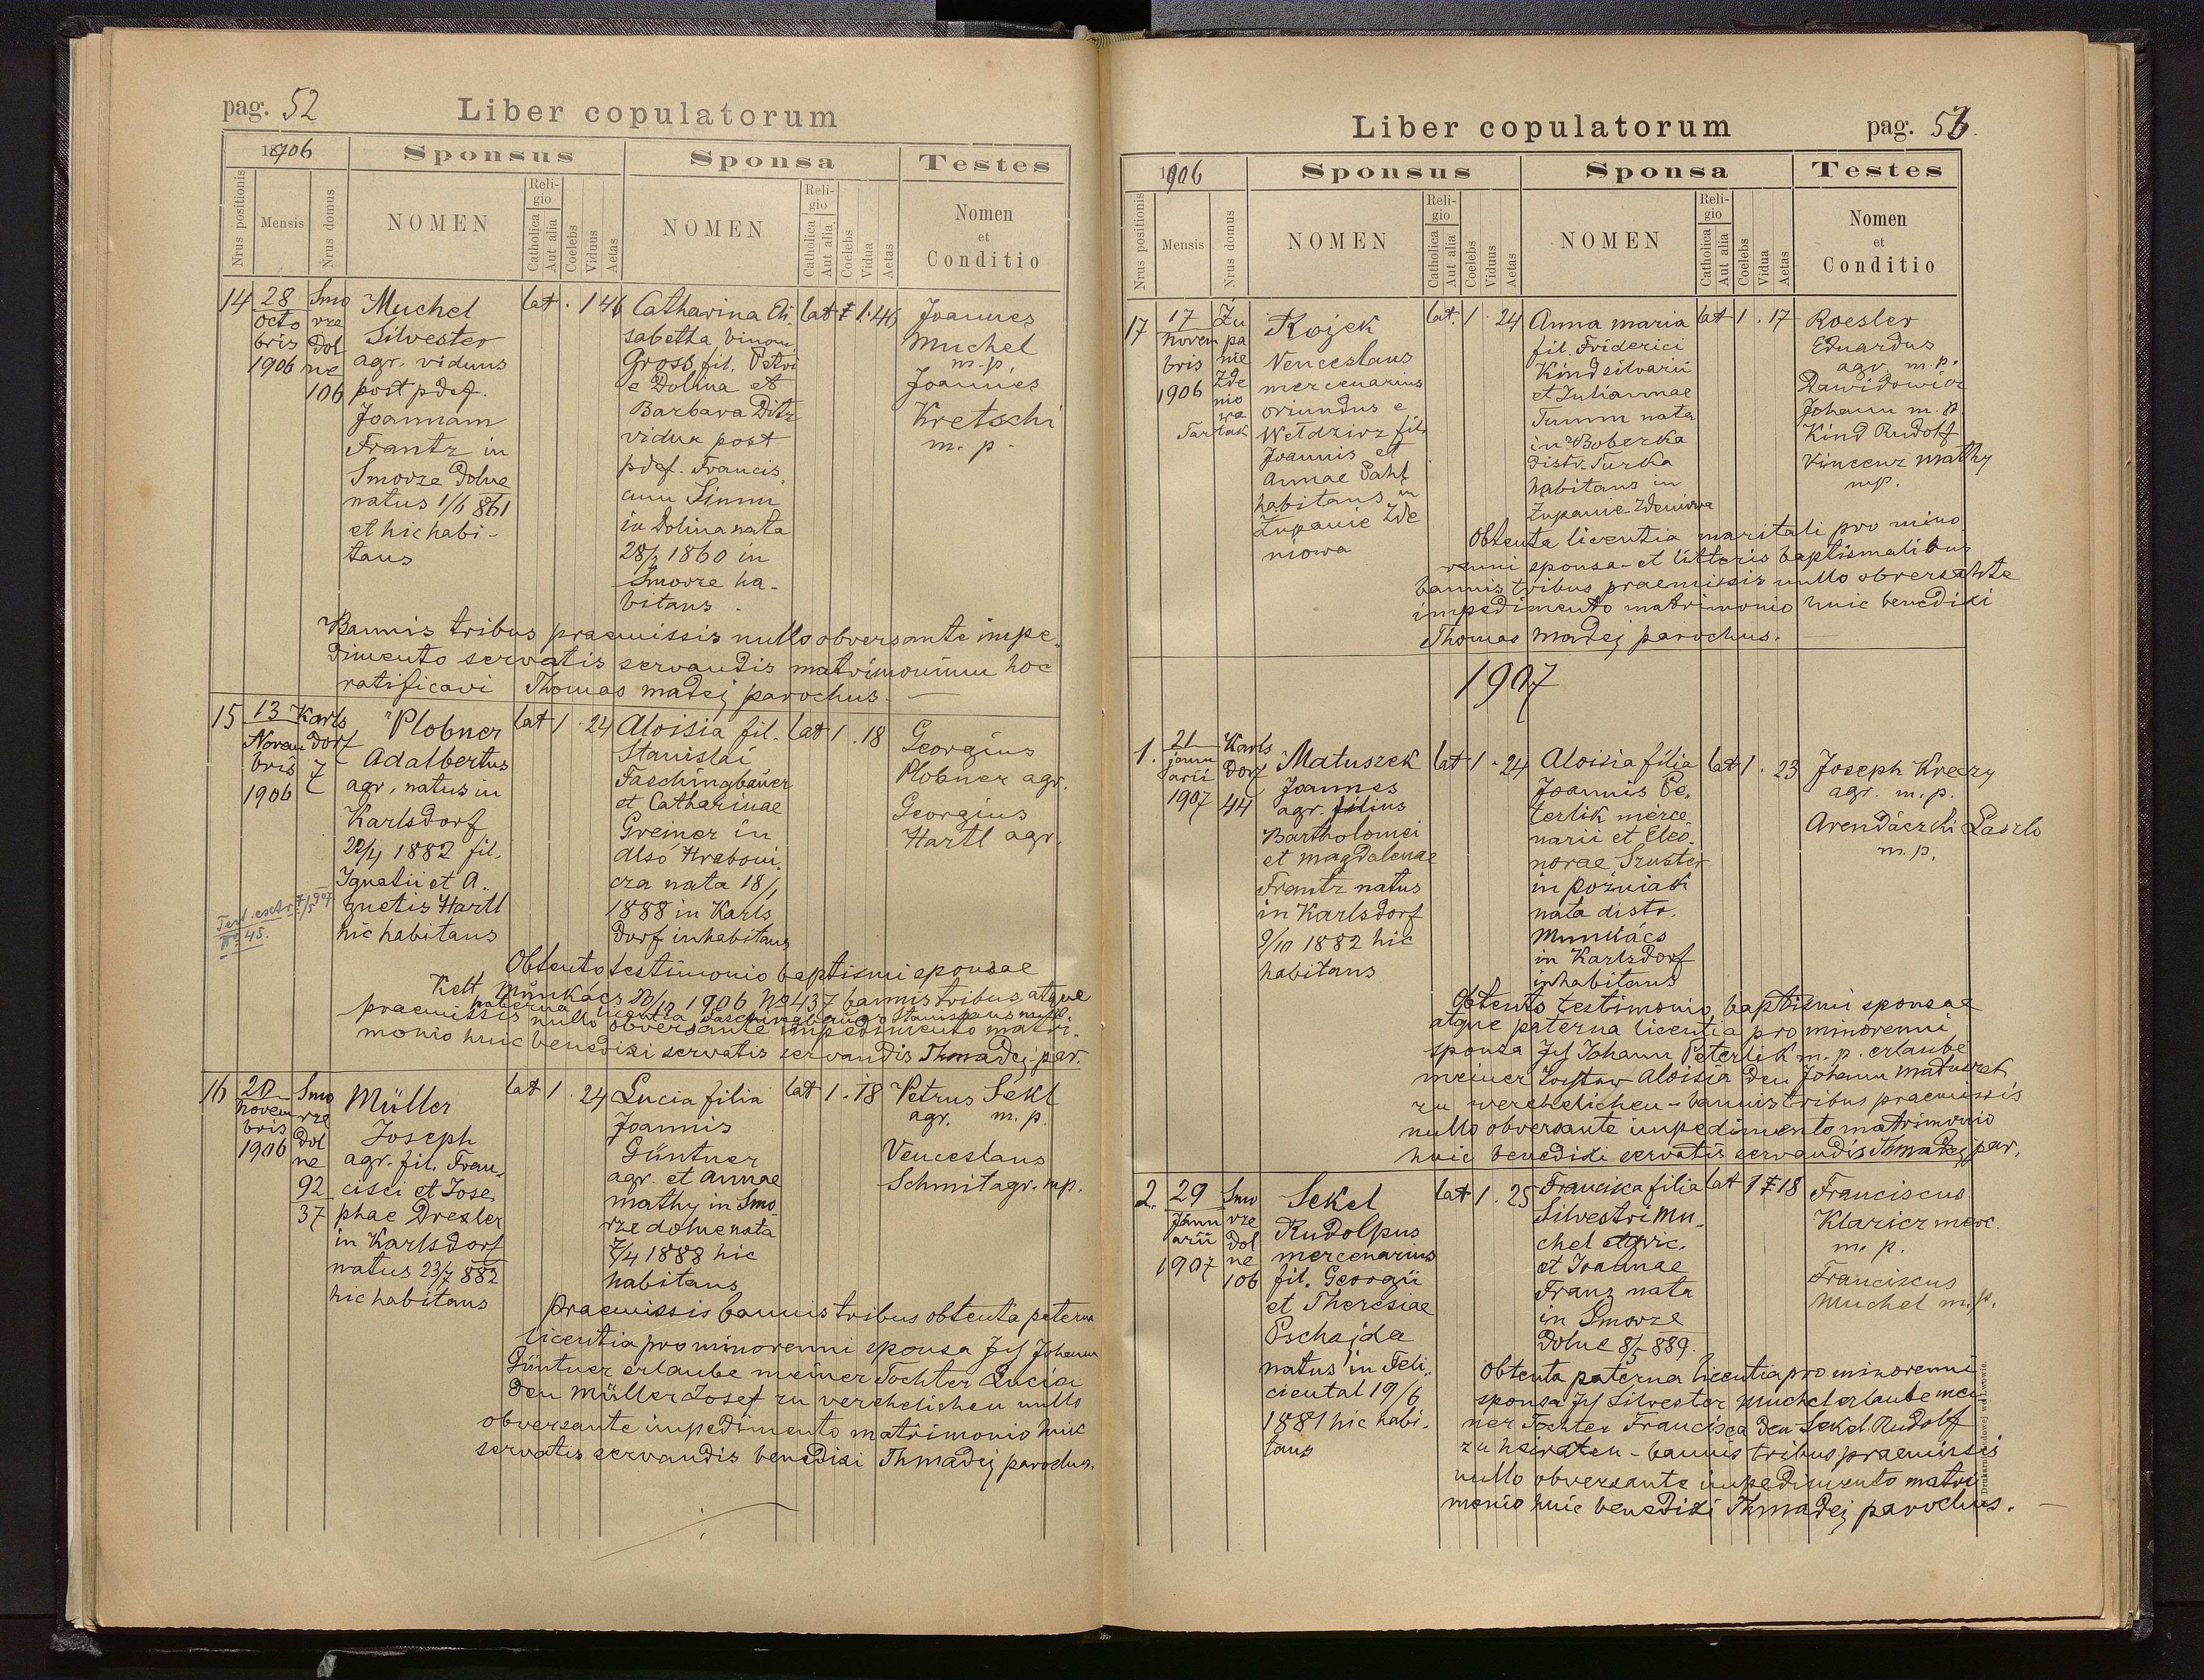 pag. 52
Liber copulatorum
1906
Sponsus
Sponsa
Testes
Nrus positionis
Mensis
Nrus domus
NOMEN
Religio
Catholica
Aut alia
Coelebs
Viduus
Aetas
NOMEN
Religio
Catholica
Aut alia
Coelebs
Vidua
Aetas
Nomen
et
Conditio
14
28
Octo
bris
1906
Smo
rze
Dol
ne
106
Muchel
Silvester
agr. viduus
post pdef.
Joannam
Frantz in
Smorze Dolne
natus 1/1 861
et hic habi-
tans
lat . 1 46
Catharina Eli-
sabetha binom.
Gross, fil. Petri
e Dolina et
Barbara Ditz
vidua post
pdef. Francis.
cum Linnu
in Dolina nata
28/2 1860 in
Smorze ha-
bitans.
lat 1. 46
Joannes
Muchel
m. p.
Joannes
Kretschi
m. p.
Bannis tribus praemissis nullo obversante impe-
dimento servatis servandis matrimonium hoc
ratificavi Thomas Madej parochus. —
15
13
Novem
bris
1906
Karls
dorf
7
Plobner
Adalbertus
agr, natus in
Karlsdorf
22/4 1882 fil.
Ignatii et A..
gnetis Hartl
hic habitans
lat 1 . 24
Aloisia fil.
Stanislai
Faschingbauer
et Catharinae
Greiner in
Also Hraboni
cza nata 18/1
1888 in Karls
dorf inhabitans
lat 1 . 18
Georgius
Plobner agr.
Georgius
Hartl agr.
Test. extr. 7/5 907
No 45.
Obtento testimonio baptismi sponsae
Kelt Munkács 20/10 1906 No 437 bannis tribus, atque
paterna licentia Faschingbauer Stanislaus
praemissis nullo obversante impedimento matri-
monio huic benedixi servatis servandis Th Madej par.
16
20
Novem
bris
1906
Smo
rze
Dol
ne
92
37
Müller
Joseph
agr. fil. Fran-
cisci et Jose
phae Drexler
in Karlsdorf
natus 23/7 882
hic habitans
lat 1 . 24
Lucia filia
Joannis
Güntner
agr. et Annae
Mathy in Smo
rze dolne nata
7/4 1888 hic
habitans
lat 1 . 18
Petrus Sekl
agr. m. p.
Venceslaus
Schmit agr. mp.
Praemissis bannis tribus obtenta paterna
licentia pro minorenni sponsa Ich Johann
Güntner erlaube meiner Tochter Lucia
den Müller Josef zu verehelichen nullo
obversante impedimento matrimonio huic
servatis servandis benedixi Th Madej parochus.
Liber copulatorum
pag. 53.
1906
Sponsus
Sponsa
Testes
Nrus positionis
Mensis
Nrus domus
NOMEN
Religio
Catholica
Aut alia
Coelebs
Viduus
Aetas
NOMEN
Religio
Catholica
Aut alia
Coelebs
Vidua
Aetas
Nomen
et
Conditio
17
17
Novem
bris
1906
Żu
pa
nie
Zde
nio
wa
Tartak
Kojek
Venceslaus
mercenarius
oriundus e
Wełdzirz fil.
Joannis et
Annae Pahl
habitans in
Żupanie Zde
niowa
lat. 1 . 24
Anna Maria
fil. Friderici
Kind silvarii
et Juliannae
Tumm nata
in Boberka
distr. Turka
habitans in
Żupanie Zdeniowa
lat 1 . 17
Roesler
Eduardus
agr. m. p.
Dawidowicz
Johann m. p.
Kind Rudolf
Vincenz Mathy
mp.
Obtenta licentia maritali pro mino
renni sponsa - et litteris baptismalibus
bannis tribus praemissis nullo obversante
impedimento matrimonio huic benedixi
Thomas Madej parochus. —
1907
1.
21
janu
arii
1907
Karls
dorf
44
Matuszek
Joannes
agr. filius
Bartholomei
et Magdalenae
Frantz natus
in Karlsdorf
9/10 1882 hic
habitans
lat 1 . 24
Aloisia filia
Joannis Pe.
terlik merce.
narii et Eleo.
norae Szuster
in Pożniak
nata distr.
Munkács
in Karlsdorf
inhabitans
lat 1 . 23
Joseph Kreczy
agr. m. p.
Arendaczki Laszlo
m. p.
Obtento testimonio baptismi sponsae
atque paterna licentia pro minorenni
sponsa Ich Johann Peterlik m. p. erlaube
meiner Tochter Aloisia den Johann Matuszek
zu verehelichen - bannis tribus praemissis
nullo obversante impedimento matrimonio
huic benedixi servatis servandis Th Madej par.
2.
29
Janu
arii
1907
Smo
rze
dol
ne
106
Sekel
Rudolpus
mercenarius
fil. Georgii
et Theresiae
Pschajda
natus in Feli..
ciental 19/6
1881 hic habi-
tans
lat 1 . 25
Francisca filia
Silvestri Mu-
chel agric.
et Joannae
Franz nata
in Smorze
Dolne 8/5 889.
lat 1 18
Franciscus
Klaricz merc.
m. p.
Franciscus
Muchel m. p.
Obtenta paterna licentia pro minorenni
sponsa Ich Silvester Muchel erlaube mei
ner Tochter Francisca den Sekel Rudolf
zu heiraten - bannis tribus praemissis
nullo obversante impedimento matri
monio huic benedixi Th Madej parochus. —